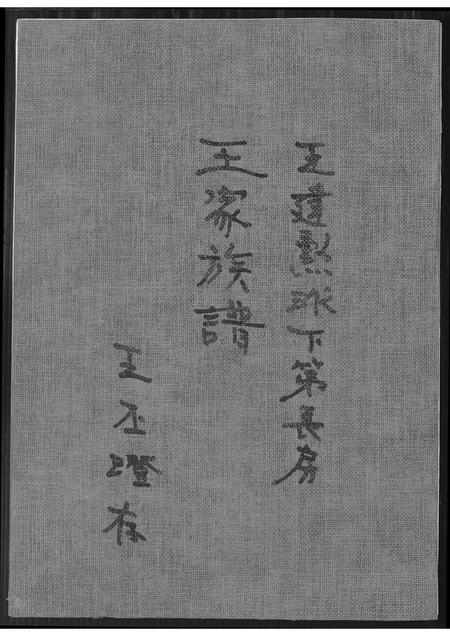 王建煞派下第長房
王家族譜
王丕瑝存